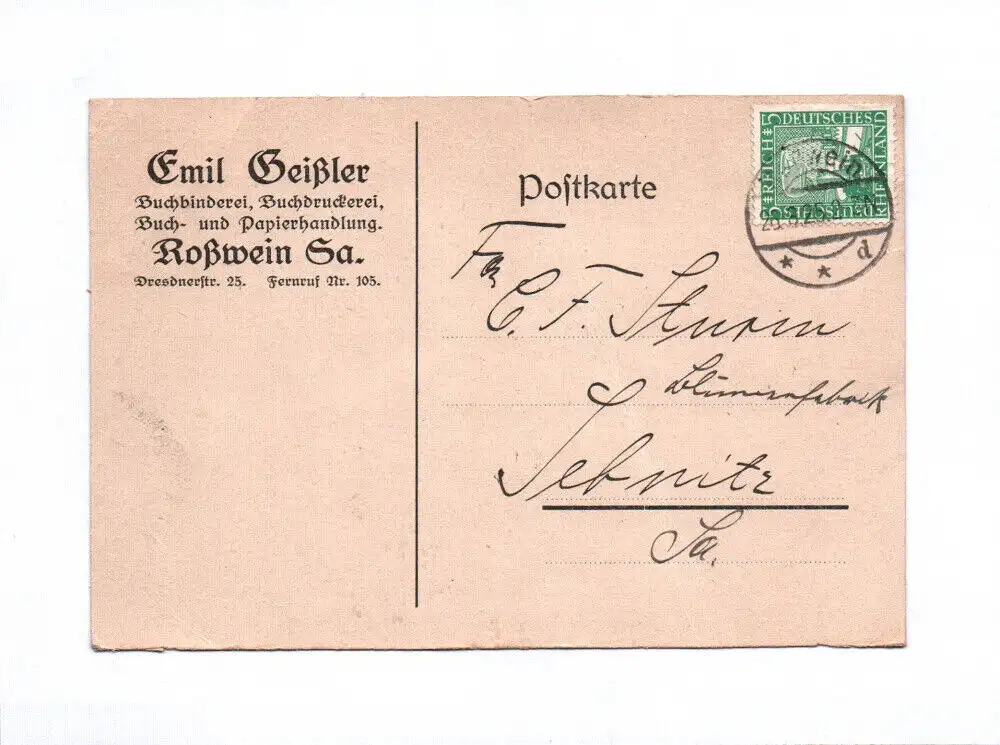 Emil Geißler
Buchbinderei, Buchdruckerei,
Buch- und Papierhandlung.
Roßwein Sa.
Dresdnerstr. 25. Fernruf Nr. 105.
Postkarte
DEUTSCHES
REICH
RHEINLAND
5
5
d
* *
Fa
C. F. Sturm
Blumenfabrik
Sebnitz
Sa.